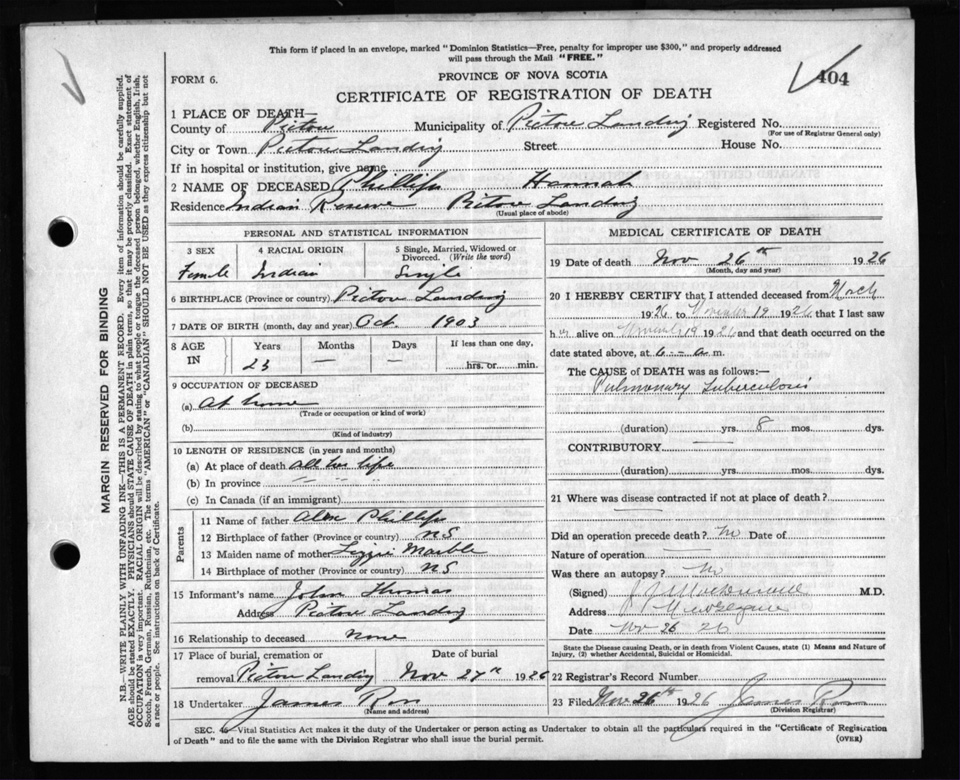 This form if placed in an envelope, marked "Dominion Statistics—Free, penalty for improper use $300," and properly addressed
will pass through the Mail "FREE."
FORM 6.
PROVINCE OF NOVA SCOTIA
404
CERTIFICATE OF REGISTRATION OF DEATH
1 PLACE OF DEATH—
County of Pictou Municipality of Pictou Landing Registered No.
(For use of Registrar General only)
City or Town Pictou Landing Street House No.
If in hospital or institution, give name
2 NAME OF DECEASED Phillips Hannah
Residence Indian Reserve Pictou Landing
(Usual place of abode)
PERSONAL AND STATISTICAL INFORMATION
3 SEX 4 RACIAL ORIGIN 5 Single, Married, Widowed or
Divorced. (Write the word)
Female Indian Single
6 BIRTHPLACE (Province or country) Pictou Landing
7 DATE OF BIRTH (month, day and year) Oct. 1903
8 AGE IN Years Months Days If less than one day,
23 — — hrs. or min.
9 OCCUPATION OF DECEASED
(a) At home
(Trade or occupation or kind of work)
(b)
(Kind of industry)
10 LENGTH OF RESIDENCE (in years and months)
(a) At place of death all her life
(b) In province " " "
(c) In Canada (if an immigrant)
Parents
11 Name of father Alex Phillips
12 Birthplace of father (Province or country) NS
13 Maiden name of mother Lizzie Marble
14 Birthplace of mother (Province or country) NS
15 Informant's name John Thomas
Address Pictou Landing
16 Relationship to deceased none
17 Place of burial, cremation or Date of burial
removal Pictou Landing Nov 27th 1926
18 Undertaker James Ross
(Name and address)
MEDICAL CERTIFICATE OF DEATH
19 Date of death Nov 26th 1926
(Month, day and year)
20 I HEREBY CERTIFY that I attended deceased from March
1926 to November 19 1926 that I last saw
her alive on November 19 1926 and that death occurred on the
date stated above, at 6 - a m.
The CAUSE of DEATH was as follows:—
Pulmonary Tuberculosis
(duration) yrs. 8 mos. dys.
CONTRIBUTORY —
(duration) yrs. mos. dys.
21 Where was disease contracted if not at place of death?
—
Did an operation precede death? No Date of
Nature of operation —
Was there an autopsy? No
(Signed) M.D.
Address New Glasgow
Date Nov 26 26
State the Disease causing Death, or in death from Violent Causes, state (1) Means and Nature of
Injury, (2) whether Accidental, Suicidal or Homicidal.
22 Registrar's Record Number
23 Filed Nov 26th 1926 James Ross
(Division Registrar)
SEC. 45—Vital Statistics Act makes it the duty of the Undertaker or person acting as Undertaker to obtain all the particulars required in the "Certificate of Registration
of Death" and to file the same with the Division Registrar who shall issue the burial permit. (OVER)
MARGIN RESERVED FOR BINDING
N.B.—WRITE PLAINLY WITH UNFADING INK—THIS IS A PERMANENT RECORD. Every item of information should be carefully supplied.
AGE should be stated EXACTLY. PHYSICIANS should STATE CAUSE OF DEATH in plain terms, so that it may be properly classified. Exact statement of
OCCUPATION is very important. RACIAL ORIGIN will be described by stating to what people or tongue the deceased person belonged, whether English, Irish,
Scotch, French, German, Russian, Ruthenian, etc. The terms "AMERICAN" or "CANADIAN" SHOULD NOT BE USED as they express citizenship but not
a race or people. See instructions on back of Certificate.